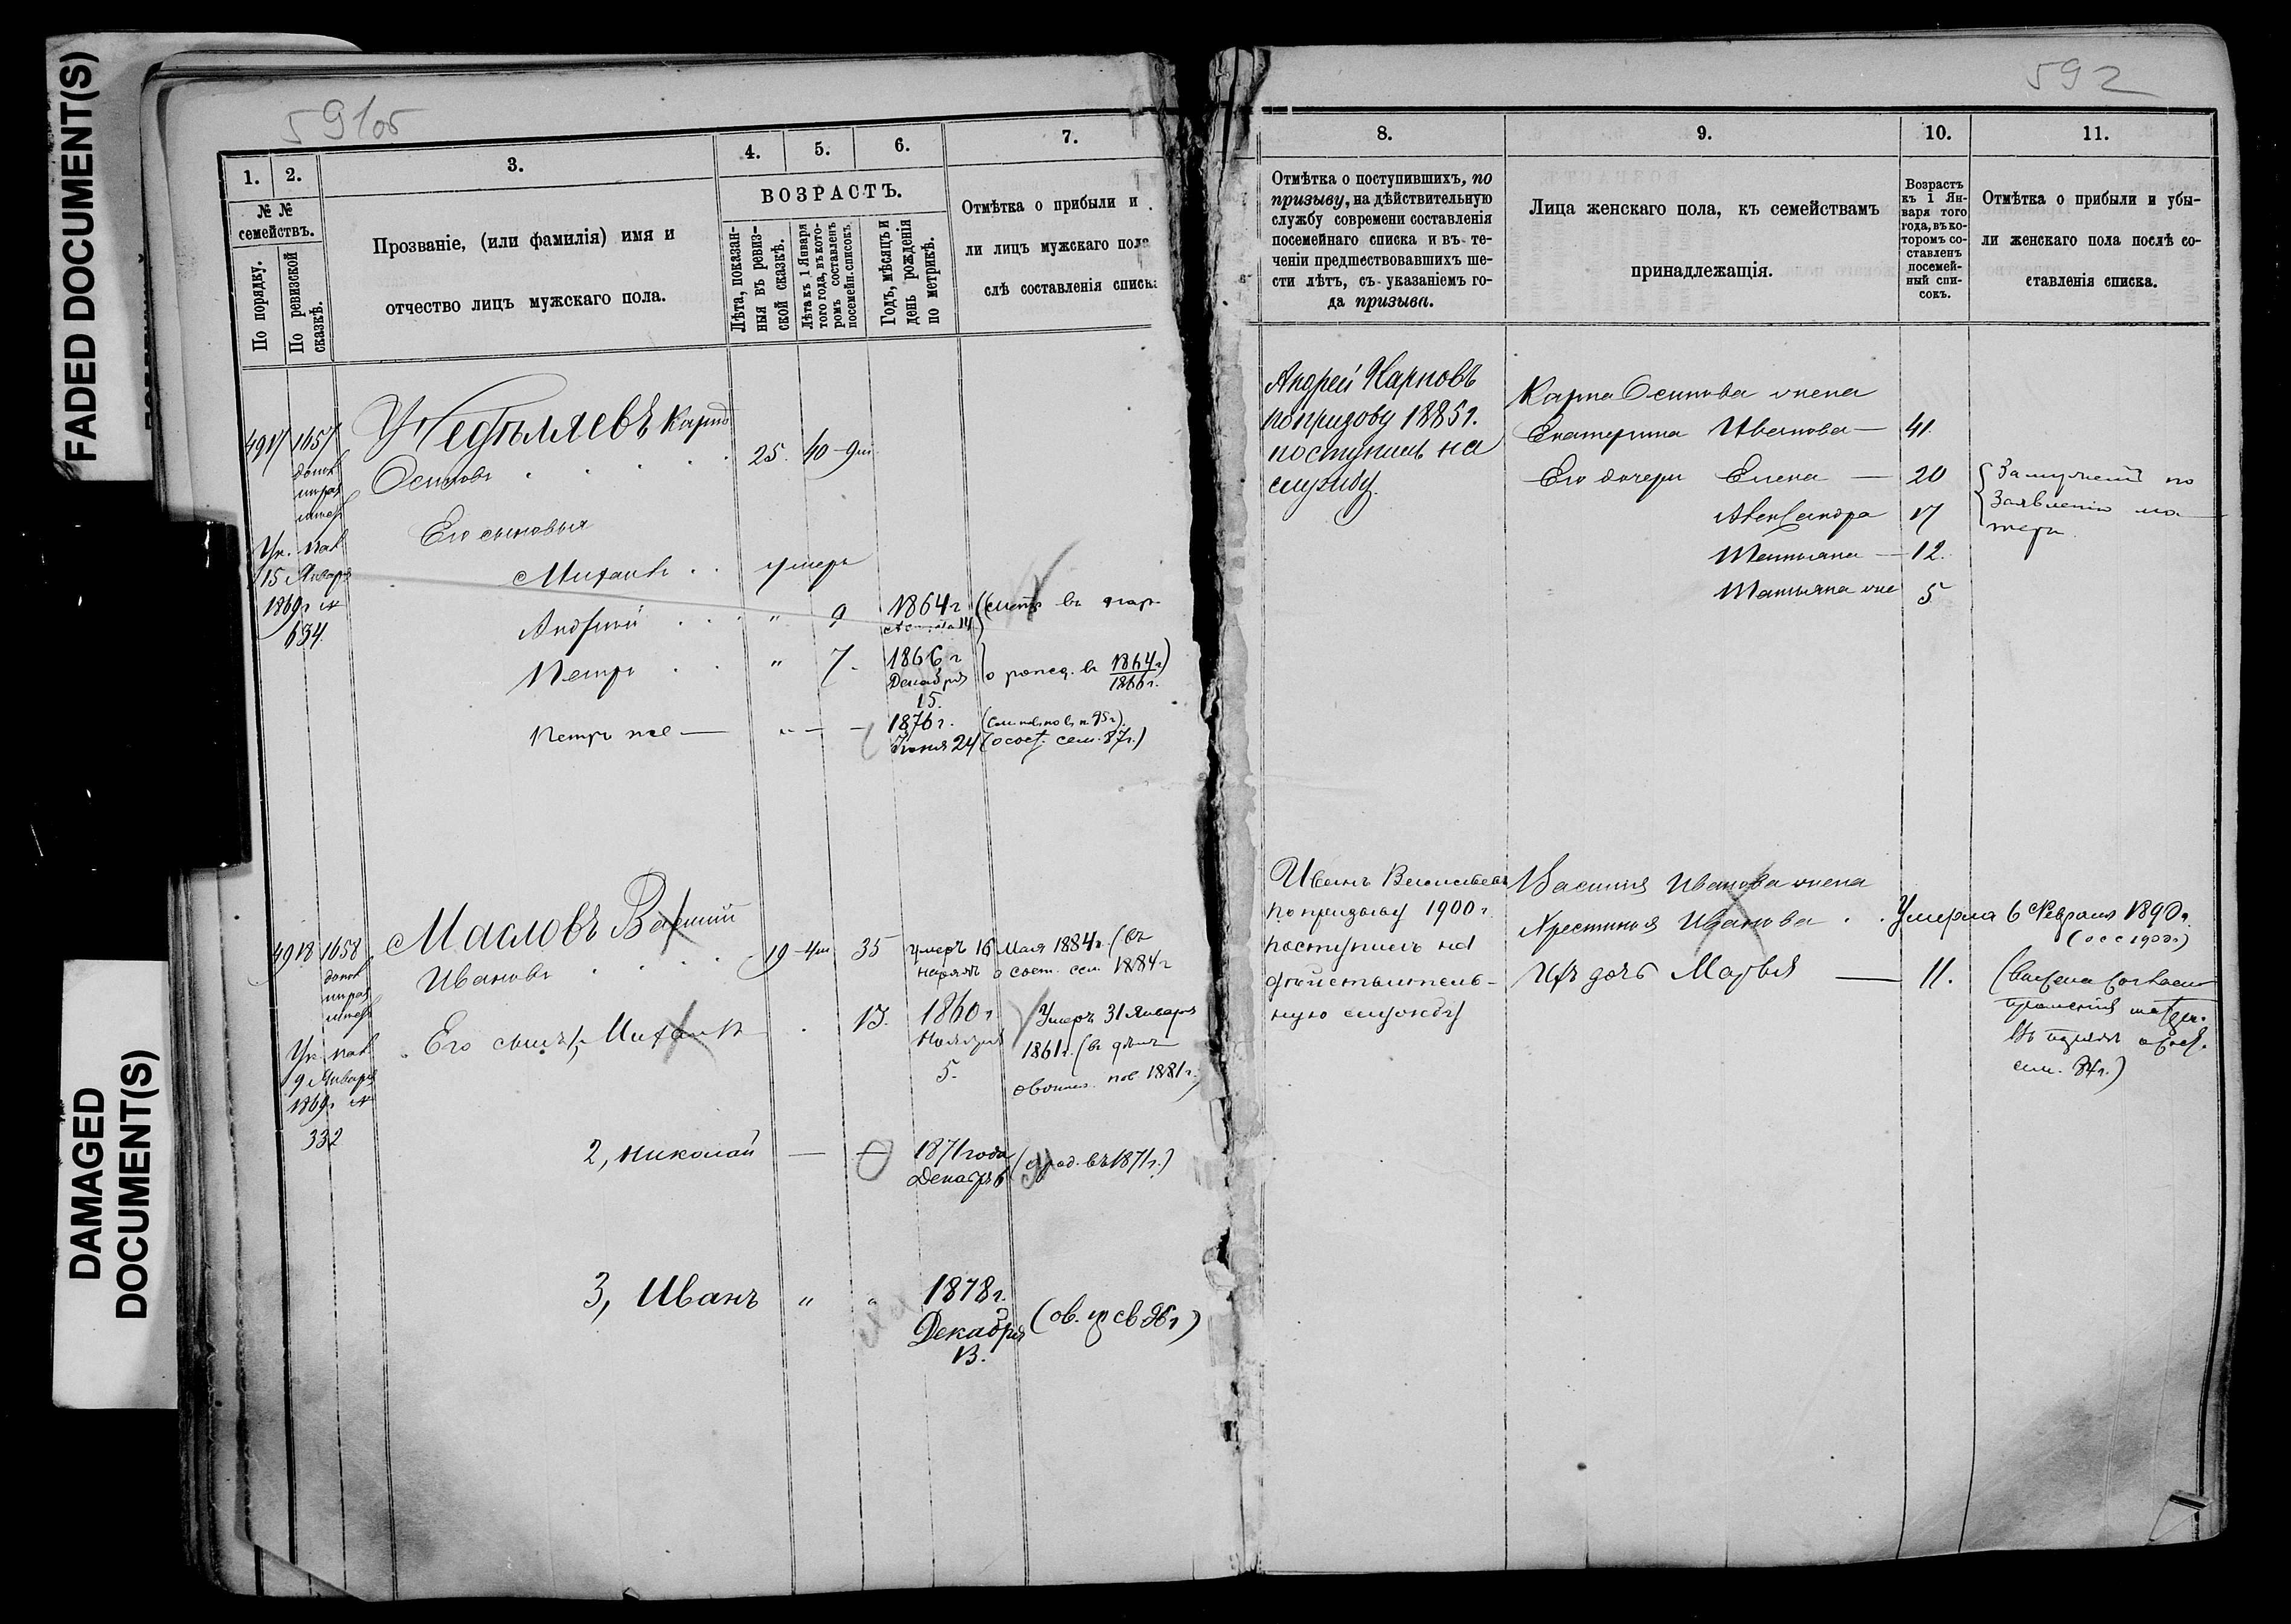 FADED DOCUMENT(S)
DAMAGED
DOCUMENT(S)
591об
1.
2.
3.
4.
5.
6.
7.
№ №
семействъ.
По порядку.
По ревизской
сказкѣ.
Прозваніе, (или фамилія) имя и
отчество лицъ мужскаго пола.
ВОЗРАСТЪ.
Лѣта, показан-
ныя въ ревиз-
ской сказкѣ.
Лѣта къ 1 Января
того года, въ кото-
ромъ составленъ
посемейн. списокъ.
Годъ, мѣсяцъ и
день рожденія
по метрикѣ.
Отмѣтка о прибыли и
ли лицъ мужскаго пола
слѣ составленія списка
4917 1657
Ук. каз
15 Января
1869 г №
634.
Недѣляевъ Карпъ
Осиповъ 25. 40 - 9 м
Его сыновья
Михаилъ умеръ
Андрей " 9 1864 г
Петръ " 7. 1866 г
Декабря
15.
(о рожд. въ 1864 г)
1866 г.
Петръ же — " — — 1876 г.
Іюня 24 (о сост. сем. 87 г.)
4918 1658
Ук. каз
9 Января
1869 г №
332
Масловъ Василій
Ивановъ 19 - 4 м 35 умеръ 16 Мая 1884 г. (въ
о сост. сем. 1884 г
Его сынъ 1, Михаилъ 13. 1860 г
Ноября
5.
Умеръ 31 Января
1861 г. (въ дѣлѣ
о воинск. пов. 1881 г.)
2, Николай — 1871 года
Декабр 6
(о род. въ 1871 г.)
3, Иванъ " " 1878 г.
Декабря
13.
592
8.
9.
10.
11.
Отмѣтка о поступившихъ, по
призыву, на дѣйствительную
службу современи составленія
посемейнаго списка и въ те-
ченіи предшествовавшихъ ше-
сти лѣтъ, съ указаніемъ го-
да призыва.
Лица женскаго пола, къ семействамъ
принадлежащія.
Возрастъ
къ 1 Ян-
варя того
года, въ ко-
торомъ со-
ставленъ
посемей-
ный спи-
сокъ.
Отмѣтка о прибыли и убы-
ли женскаго пола послѣ со-
ставленія списка.
Андрей Карповъ
по призову 1885 г.
поступилъ на
службу.
Карпа Осипова жена
Екатерина Иванова — 41.
Его дочери Елена — 20
Александра 17
Татьяна — 12.
Татьяна же 5
Замужемъ по
заявленію ма-
тери.
Иванъ Васильевъ
по призыву 1900 г.
поступилъ на
дѣйствитель-
ную службу
Василія Иванова жена
Хрестинья Иванова
Умерла 6 Февраля 1890 г.
(о с с 1900 г)
Ихъ дочь Марья — 11.
сем. 84 г.)